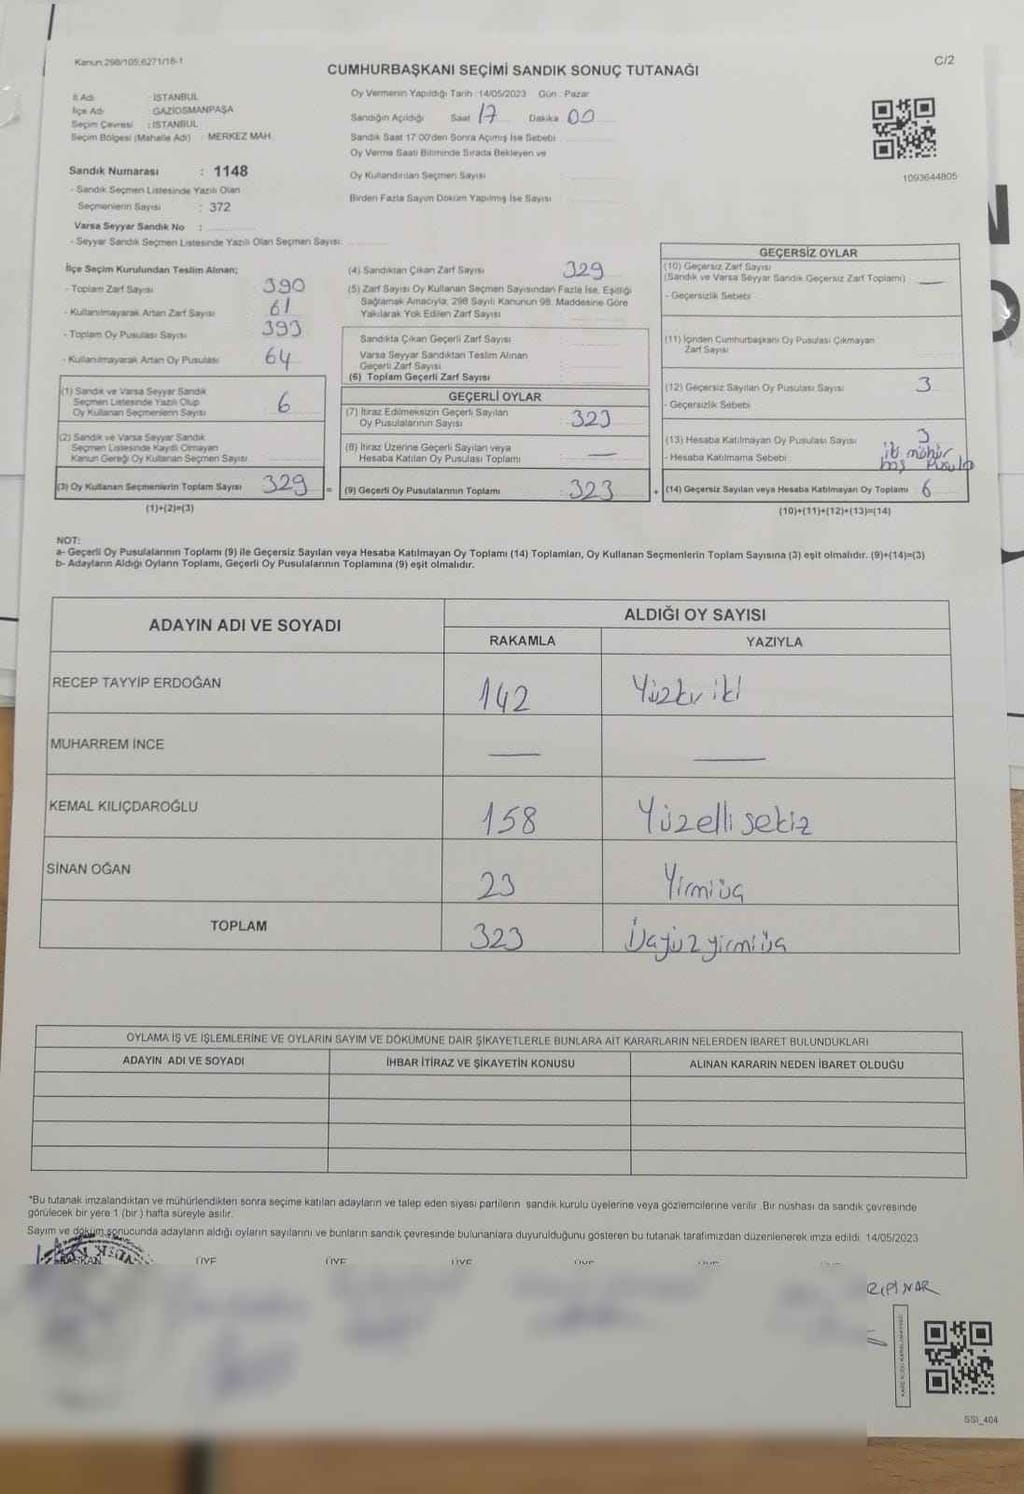 Kanun:298/105,6271/16-1
C/2
CUMHURBAŞKANI SEÇİMİ SANDIK SONUÇ TUTANAĞI
İl Adı : İSTANBUL
İlçe Adı : GAZİOSMANPAŞA
Seçim Çevresi : İSTANBUL
Seçim Bölgesi (Mahalle Adı) : MERKEZ MAH.
Sandık Numarası : 1148
- Sandık Seçmen Listesinde Yazılı Olan
Seçmenlerin Sayısı : 372
Varsa Seyyar Sandık No :
- Seyyar Sandık Seçmen Listesinde Yazılı Olan Seçmen Sayısı:
Oy Vermenin Yapıldığı Tarih : 14/05/2023 Gün : Pazar
Sandığın Açıldığı Saat 17 Dakika 00
Sandık Saat 17:00'den Sonra Açılmış İse Sebebi
Oy Verme Saati Bitiminde Sırada Bekleyen ve
Oy Kullandırılan Seçmen Sayısı
Birden Fazla Sayım Döküm Yapılmış İse Sayısı
1093644805
İlçe Seçim Kurulundan Teslim Alınan;
- Toplam Zarf Sayısı 390
- Kullanılmayarak Artan Zarf Sayısı 61
- Toplam Oy Pusulası Sayısı 393
- Kullanılmayarak Artan Oy Pusulası 64
(1) Sandık ve Varsa Seyyar Sandık
Seçmen Listesinde Yazılı Olup
Oy Kullanan Seçmenlerin Sayısı 6
(2) Sandık ve Varsa Seyyar Sandık
Seçmen Listesinde Kayıtlı Olmayan
Kanun Gereği Oy Kullanan Seçmen Sayısı
(3) Oy Kullanan Seçmenlerin Toplam Sayısı 329 =
(1)+(2)=(3)
(4) Sandıktan Çıkan Zarf Sayısı 329
(5) Zarf Sayısı Oy Kullanan Seçmen Sayısından Fazla İse, Eşitliği
Sağlamak Amacıyla, 298 Sayılı Kanunun 98. Maddesine Göre
Yakılarak Yok Edilen Zarf Sayısı
Sandıkta Çıkan Geçerli Zarf Sayısı
Varsa Seyyar Sandıktan Teslim Alınan
Geçerli Zarf Sayısı
(6) Toplam Geçerli Zarf Sayısı
GEÇERLİ OYLAR
(7) İtiraz Edilmeksizin Geçerli Sayılan
Oy Pusulalarının Sayısı 323
(8) İtiraz Üzerine Geçerli Sayılan veya
Hesaba Katılan Oy Pusulası Toplamı —
(9) Geçerli Oy Pusulalarının Toplamı 323 +
GEÇERSİZ OYLAR
(10) Geçersiz Zarf Sayısı
(Sandık ve Varsa Seyyar Sandık Geçersiz Zarf Toplamı) —
- Geçersizlik Sebebi
(11) İçinden Cumhurbaşkanı Oy Pusulası Çıkmayan
Zarf Sayısı
(12) Geçersiz Sayılan Oy Pusulası Sayısı 3
- Geçersizlik Sebebi
(13) Hesaba Katılmayan Oy Pusulası Sayısı 3
- Hesaba Katılmama Sebebi iki mühür
boş pusula
(14) Geçersiz Sayılan veya Hesaba Katılmayan Oy Toplamı 6
(10)+(11)+(12)+(13)=(14)
NOT:
a- Geçerli Oy Pusulalarının Toplamı (9) ile Geçersiz Sayılan veya Hesaba Katılmayan Oy Toplamı (14) Toplamları, Oy Kullanan Seçmenlerin Toplam Sayısına (3) eşit olmalıdır. (9)+(14)=(3)
b- Adayların Aldığı Oyların Toplamı, Geçerli Oy Pusulalarının Toplamına (9) eşit olmalıdır.
ADAYIN ADI VE SOYADI
ALDIĞI OY SAYISI
RAKAMLA YAZIYLA
RECEP TAYYİP ERDOĞAN 142 Yüzkırk iki
MUHARREM İNCE — —
KEMAL KILIÇDAROĞLU 158 Yüzelli sekiz
SİNAN OĞAN 23 Yirmiüç
TOPLAM 323 Üçyüz yirmi üç
OYLAMA İŞ VE İŞLEMLERİNE VE OYLARIN SAYIM VE DÖKÜMÜNE DAİR ŞİKAYETLERLE BUNLARA AİT KARARLARIN NELERDEN İBARET BULUNDUKLARI
ADAYIN ADI VE SOYADI İHBAR İTİRAZ VE ŞİKAYETİN KONUSU ALINAN KARARIN NEDEN İBARET OLDUĞU
*Bu tutanak imzalandıktan ve mühürlendikten sonra seçime katılan adayların ve talep eden siyasi partilerin sandık kurulu üyelerine veya gözlemcilerine verilir. Bir nüshası da sandık çevresinde
görülecek bir yere 1 (bir) hafta süreyle asılır.
Sayım ve döküm sonucunda adayların aldığı oyların sayılarını ve bunların sandık çevresinde bulunanlara duyurulduğunu gösteren bu tutanak tarafımızdan düzenlenerek imza edildi. 14/05/2023
ÜYE ÜYE ÜYE
SSI_404